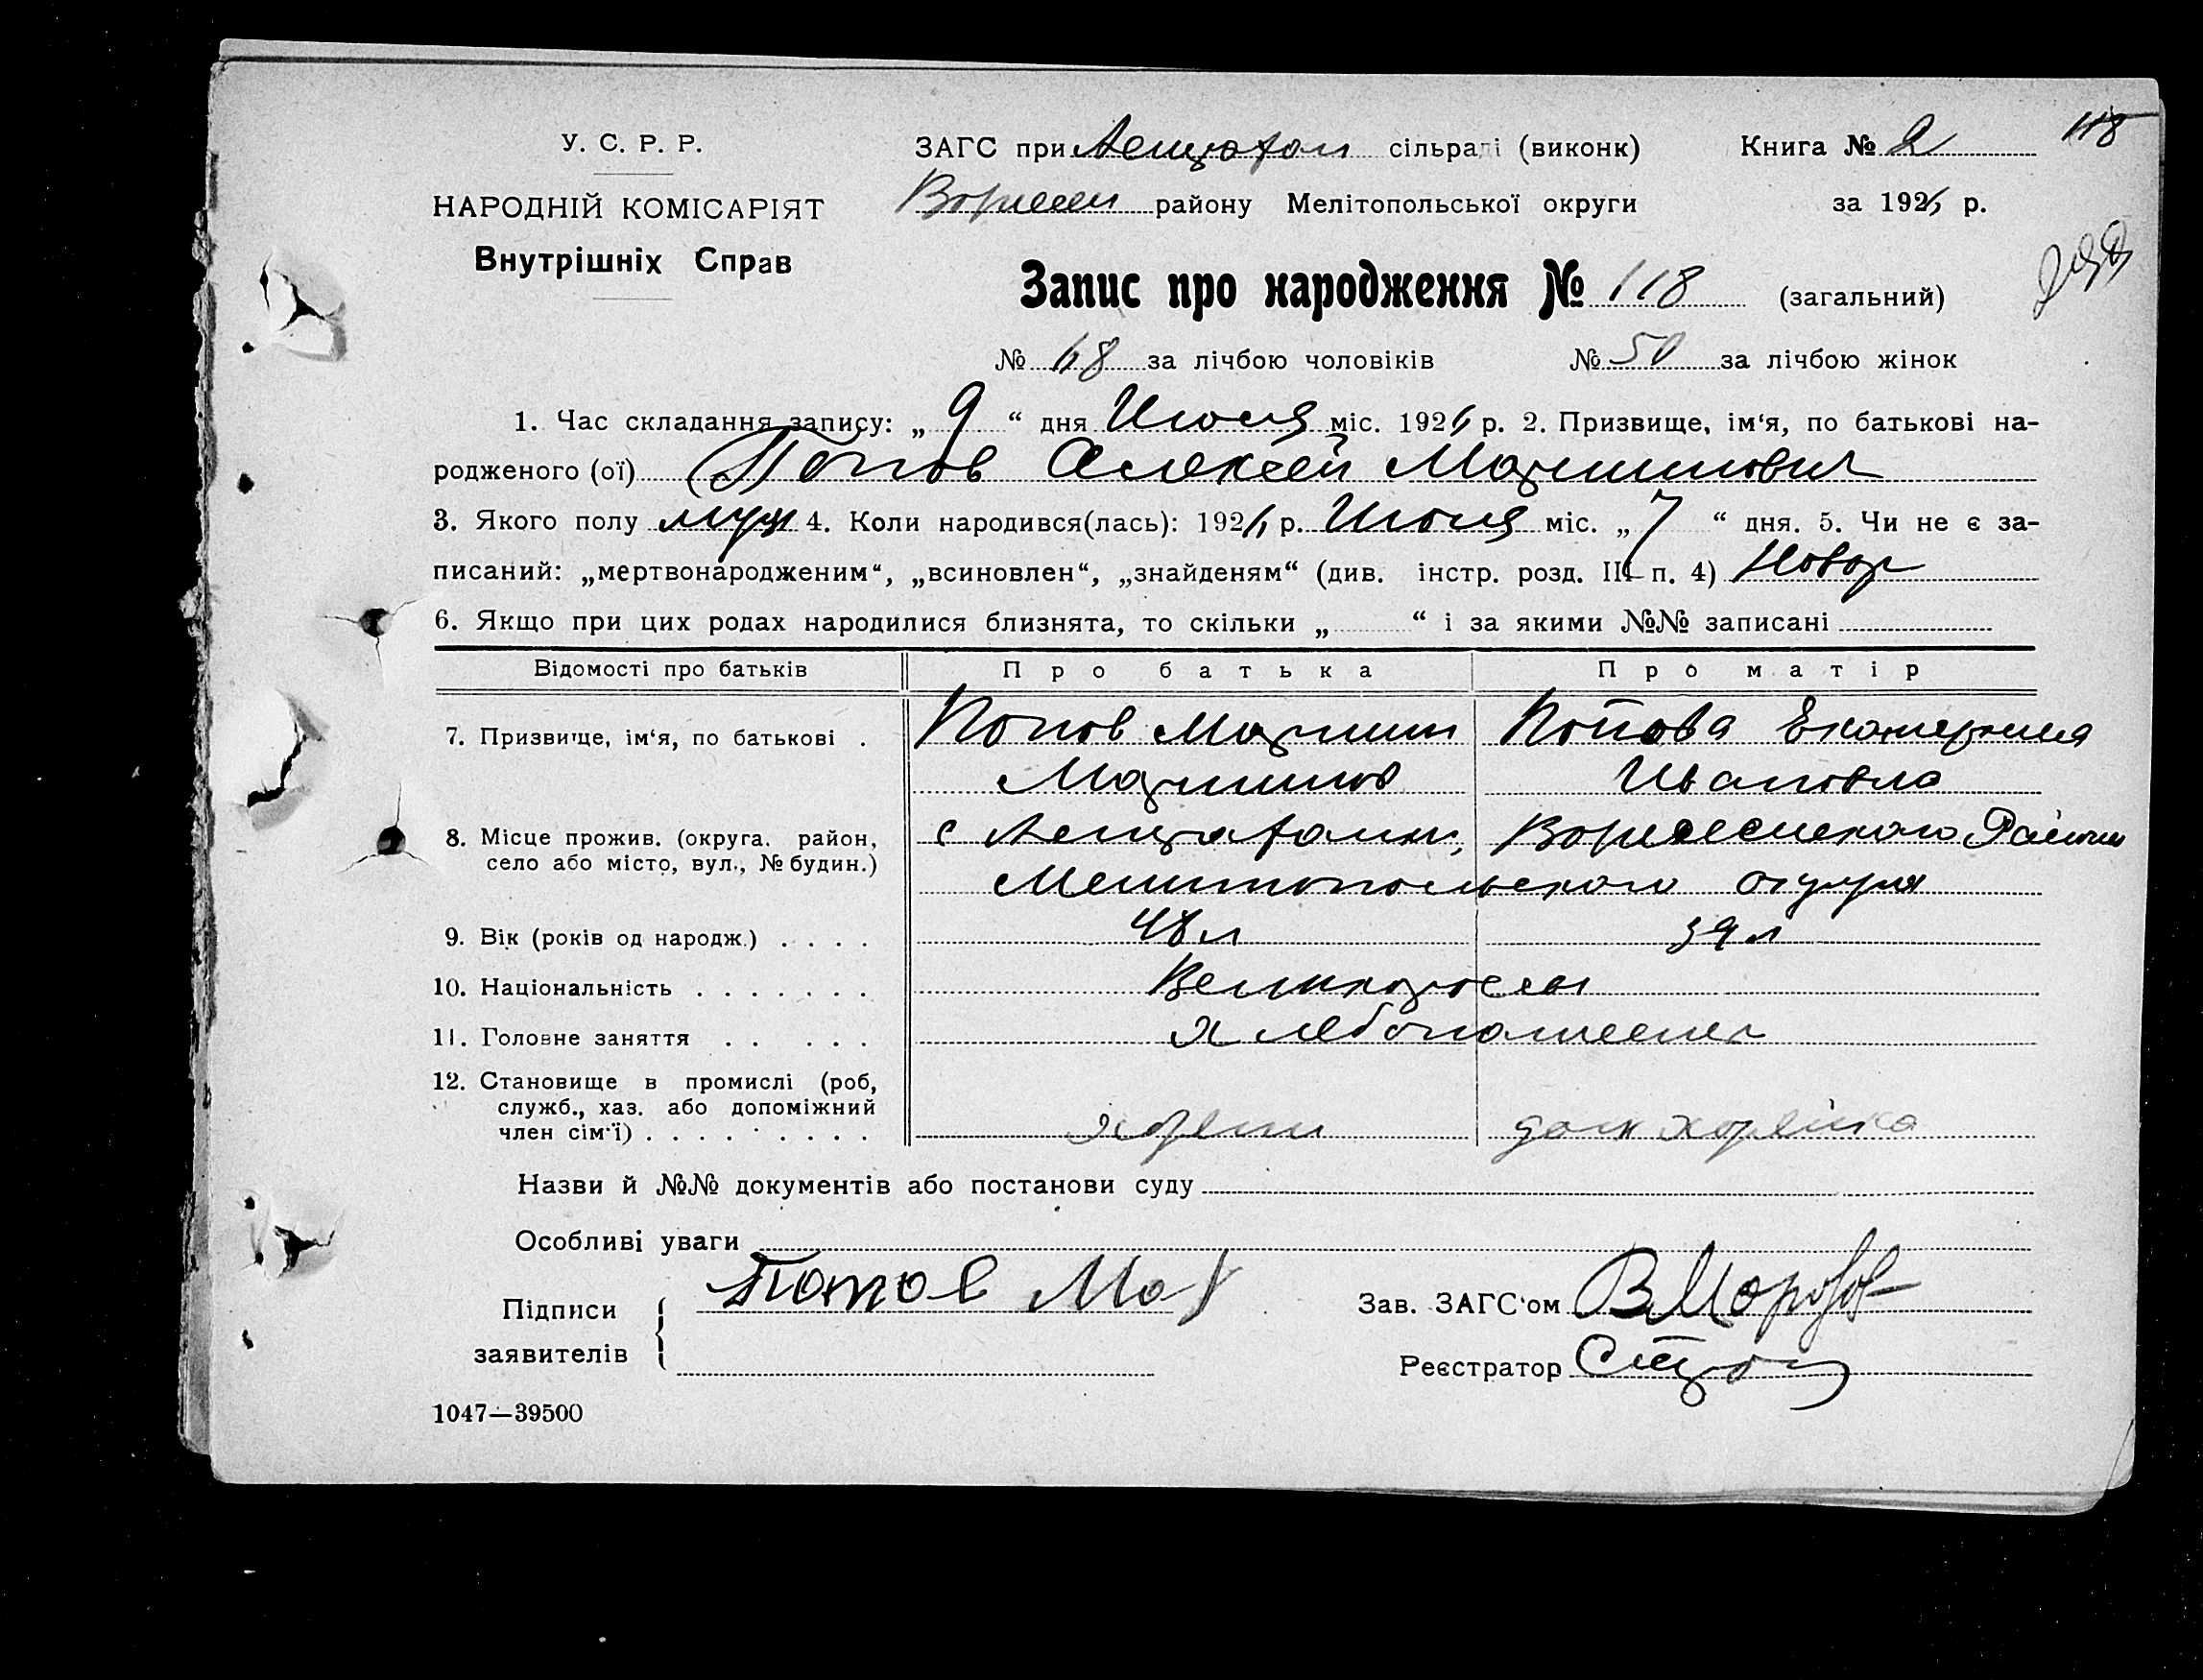 118
У. С. Р. Р.
ЗАГС при Лепатон сільраді (виконк)
Книга № 2
НАРОДНІЙ КОМІСАРІЯТ
району Мелітопольської округи
за 1926 р.
Внутрішніх Справ
Запис про народження № 118 (загальний)
№ 68 за лічбою чоловіків № 50 за лічбою жінок
1. Час складання запису: „ 9 “ дня Июля міс. 1926 р. 2. Призвище, ім‘я, по батькові на-
родженого (ої) Попов Алексей Мартинович
3. Якого полу муж 4. Коли народився(лась): 1926 р. Июля міс. „ 7 “ дня. 5. Чи не є за-
писаний: „мертвонародженим“, „всиновлен“, „знайденям“ (див. інстр. розд. III п. 4) Новор
6. Якщо при цих родах народилися близнята, то скільки „ “ і за якими №№ записані
Відомості про батьків Про батька Про матір
7. Призвище, ім‘я, по батькові . Попов Мартин Попова Екатерина
Мартинов Ивановна
8. Місце прожив. (округа, район,
село або місто, вул., № будин.)
с Района
Мелитопольского округа
9. Вік (років од народж.) . . . . 48 л 39 л
10. Національність . . . . . . . Великороссы
11. Головне заняття . . . . . Хлебопашец
12. Становище в промислі (роб,
служб., хаз. або допоміжний
член сім‘ї) . . . . . . . . .
Назви й №№ документів або постанови суду
Особливі уваги
Підписи
заявителів
Попов Мар
Зав. ЗАГС‘ом В Морозов
Реєстратор
1047—39500